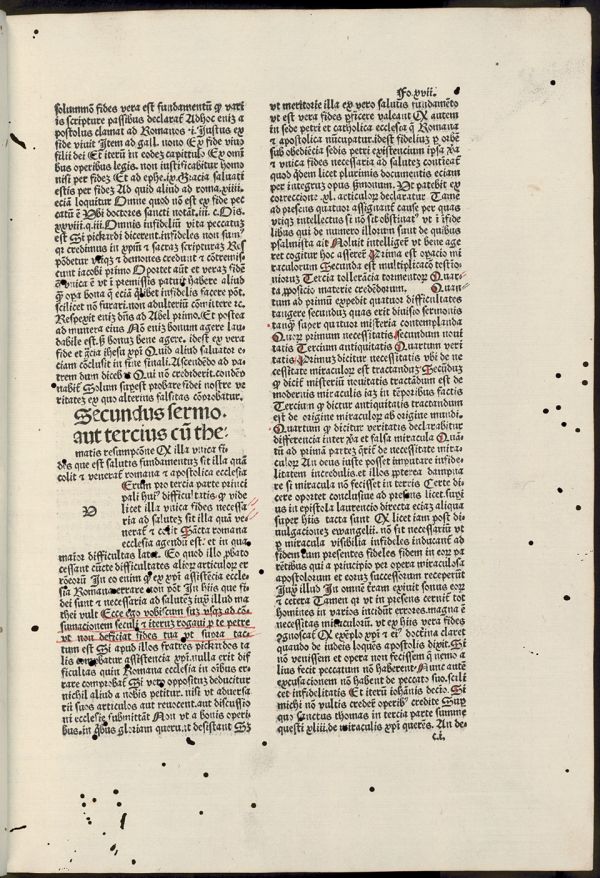 Fo.xvii.
solummō fides vera est fundamentū ꝙ varijs scripture passibus declarat̄ Adhoc eniʒ a
postolus clamat ad Romanos .i. Justus ex
fide viuit Item ad gall. nono Ex fide viuo
filij dei Et iterū in codeʒ capitulo Ex omi
bus operibus legis. non iustificabitur homo
nisi per fideʒ Et ad ephe. ix. Gracia saluati
estis per fideʒ Ad quid aliud ad roma. xiiii.
ecia loquitur Omne quod nō est ex fide pec
catū ē Vbi doctores sancti notāt. iii. c. Dis.
xxviii. q. iii Omnis infideliū vita peccatuʒ
est Si pickardi dicerent. infideles non sum᷒
qr̄ credimus in xpm̄ ⁊ sacraʒ scripturaʒ Rs̄
pōdetur vtiqʒ ⁊ demones credunt ⁊ cōtremis
cunt iacobi primo Oportet aūt et veraʒ fidē
vnica ē vt i premissis patuit habere aliud
nabit̄ Solum superest probare fidei nostre ve
ritateʒ ex quo alterius falsitas cōprobatur.
Secundus sermo.
aut tercius cū the⸗
matis resumpcōne Ex illa vnica fi⸗
des que est salutis fundamentuʒ sit illa quā
colit ⁊ venerat̄ romana ⁊ apostolica ecclesia
Erum pro tercia parte princi
pali hui᷒ difficultatis ꝙ vide
licet illa vnica fides necessa
ria ad saluteʒ sit illa quā ve⸗
nerat̄ ⁊ colit Sācta romana
ecclesia agendū est. et in qua
maior difficultas latet. Eo quod illo ꝓbato
cessant cūcte difficultates alioꝝ articuloꝝ er
roreoꝝ In eo enim ꝙ ex xpi assistēcia eccle⸗
sia Romana errare non pōt In hijs que fi⸗
dei sunt ⁊ necessaria ad saluteʒ iuxͣ illud ma
thei vlt̄ Ecce ego vobiscum sū vsqʒ ad cō⸗
sumacionem seculi ⁊ iteruʒ rogaui ꝓ te petre
vt non deficiat fides tua vt supra tac⸗
tum est Si apud illos fratres pickardes ta
lis comprobatur assistencia xpi. nulla erit dif
ficultas quin Romana ecclesia in oībus er⸗
rare comprobat̄ Si vero oppositus deducitur
nichil aliud a nobis petitur. nisi vt aduersa
rij suos articulos aut reuocent. aut discussio
ni ecclesie submittāt Non vt a bonis operi
bus. in ꝗbus gloriam querunt desistant Sʒ
vt meritorie illa ex vero salutis fundamēto
vt est vera fides ꝑficere valeant Ex autem
in sede petri et catholica ecclesia ꝙ Romana
⁊ apostolica nūcupatur. idest fideliuʒ ꝑ orbē
sub obediēcia sedis petri existencium ipsa ꝟa
⁊ vnica fides necessaria ad saluteʒ contineat̄
quod q̄dem licet plurimis documentis eciam
per integrum opus sꝫmonum. Vt patebit ex
correccione. xl. articuloꝝ declaratur Tamē
ad presens quatuor assignant̄ cause per quas
vtiqʒ intellectus si nō sit obstinat᷒ vt i īfide
libus qui de numero illorum sunt de quibus
psalmista ait Noluit intelligeē vt bene age
ret cogitur hoc asserere Prima est opacio mi
raculorum Secunda est multiplicacō testio
nioruʒ Tercia tollerācia tormentoꝝ Quar⸗
ta ꝓposicio materie credēdorum. Quan⸗
tum ad primū expedit quatuor difficultates
tangere secunduʒ quas erit diuisio sermonis
tanqʒ super quatuor misteria contemplanda
Quoꝝ primum necessitatis secundum noui
tatis Tercium antiquitatis Quartum veri
tatis Primuʒ dicitur necessitatis vbi de ne
cessitate miraculoꝝ est tractanduʒ Secūduʒ
ꝙ dicit̄ misteriū nouitatis tractandum est de
modernis miraculis iaʒ in tēporibus factis
Tercium ꝙ dictur antiquitatis tractandum
est de origine miraculoꝝ ab origine mundi.
Quartum ꝙ dicitur veritatis declarabitur
differencia inter ꝟa et falsa miracula Quā⸗
tū ad primā parteʒ q̄rit̄ de necessitate mira⸗
culoꝝ An deus iuste posset imputare infide⸗
litatem incredulis. et illos ꝓpterea dampna
re si miracula nō fecisset in terris Certe di⸗
cere oportet conclusiue ad presens licet. suꝑ
in epistola laurencio directa eciaʒ aliqua
super hijs tacta sunt Ex licet iam post di⸗
uulgacionem ewangelij. nō sit necessarij vt
ꝑ miracula visibilia infideles inducant̄ ad
fidem cum presentes fideles fidem in eoꝝ pa
rētibus qui a principio per opera miraculosa
apostolorum et eorum successorum receperūt
Juxͣ illud In omnē tram exiuit sonus eoꝝ
⁊ cetera Tamen qr̄ vt in presens cernit̄ tot
homines in varios incidūt errores. magna ē
necessitas miraculoꝝ. vt ex hijs vera fides
cognoscat̄ Ex exēplo xpi ⁊ ei᷒ doctrina claret
quando de iudeis loquēs apostolis dixit Si
nō venissem et opera non fecissem ꝙ nemo a
lius fecit peccatum nō haberent Nunc autē
excusacionem nō habent de peccato suo. scili
cet infidelitatis Et iterū iohānis decīo. Si
michi nō vultis credeē operib᷒ credite Suꝑ
quo sanctus thomas in tercia parte summe
questi xliii. de miraculis xpi querēs. An de⸗
c.i.